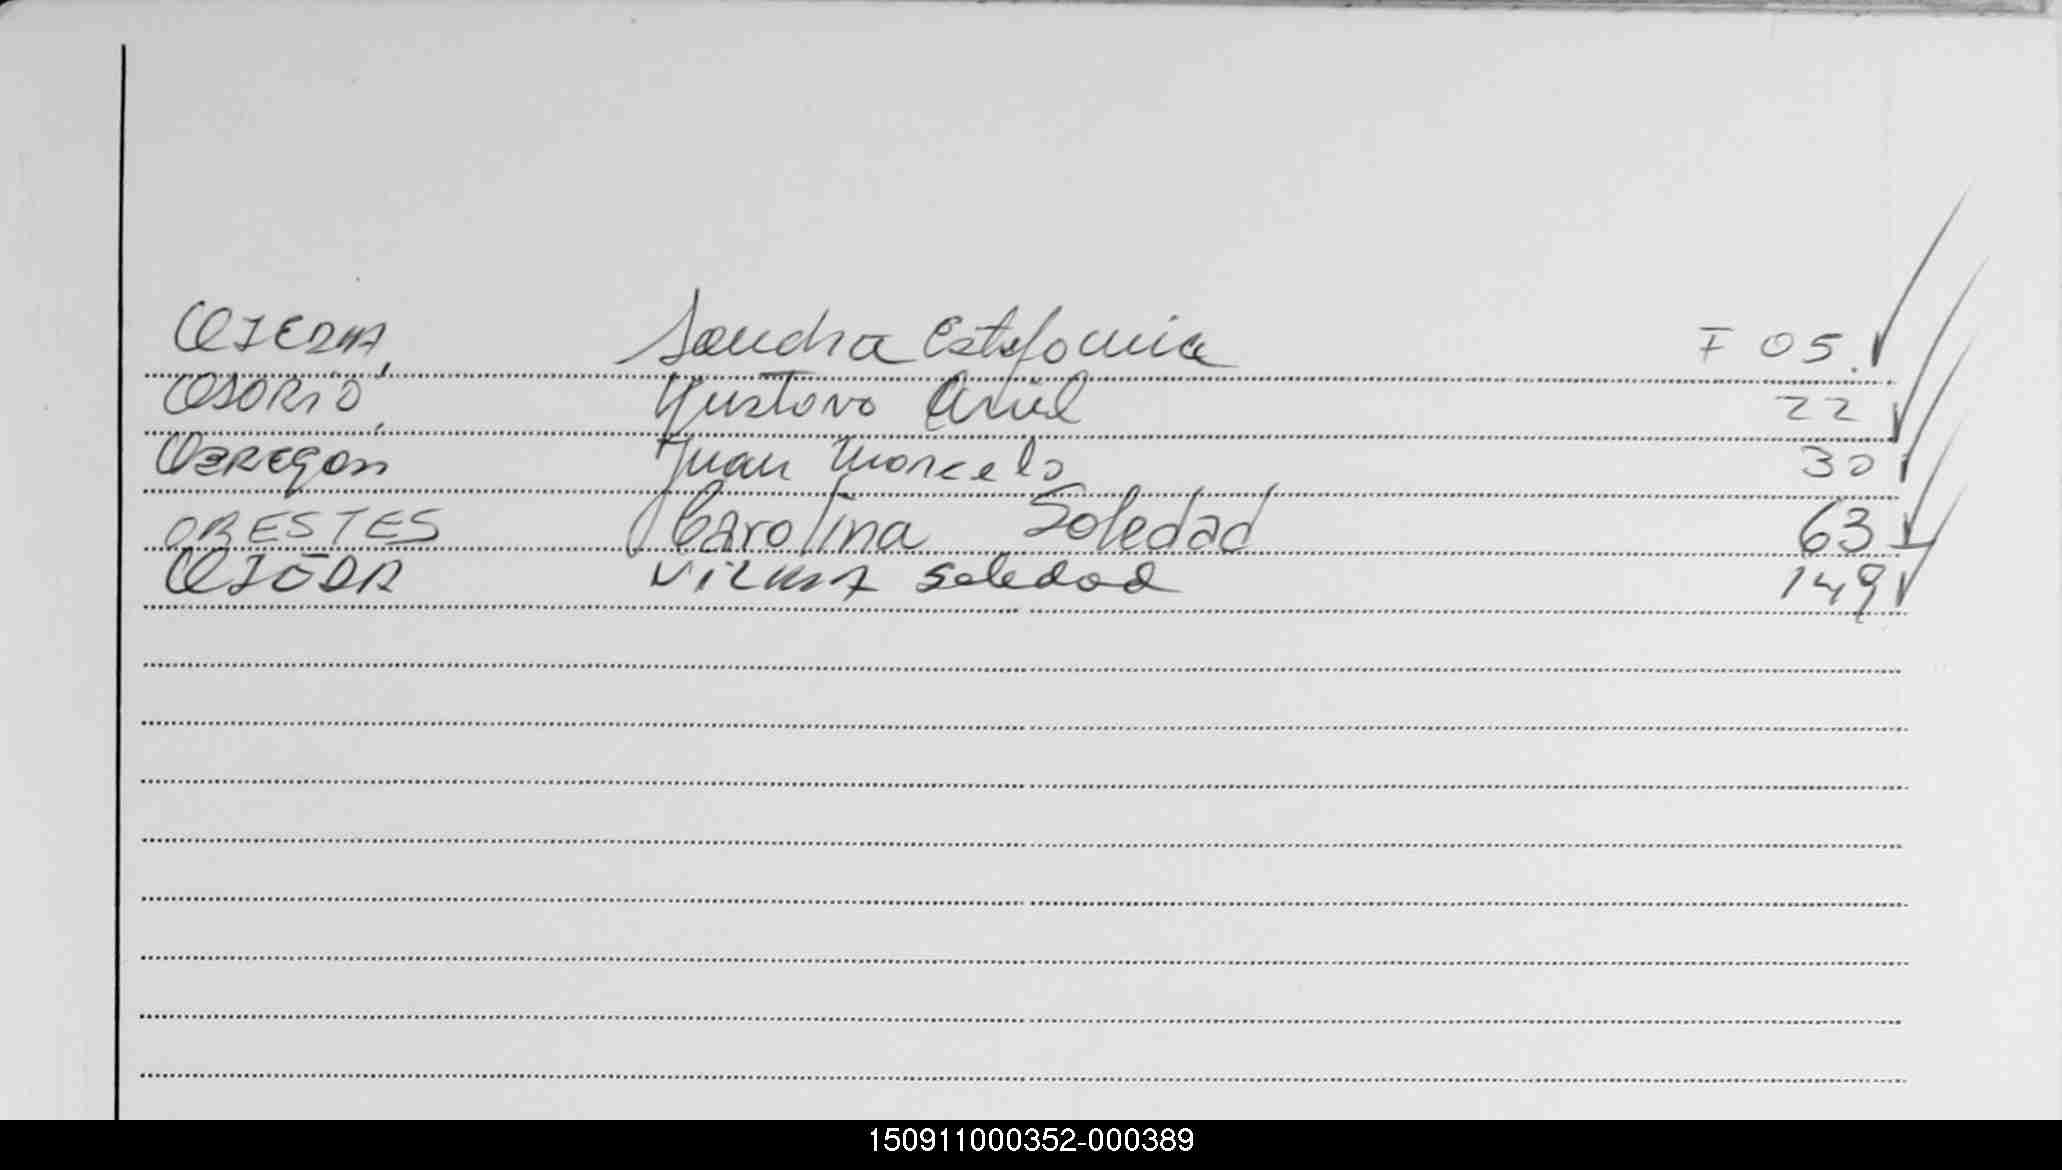 OJEDA, Sandra Estefania F 05.
OSORIO, Gustavo Ariel 22
OBREGON Juan Marcelo 30
ORESTES Carolina Soledad 63
OJEDA Vilma Soledad 149
150911000352-000389